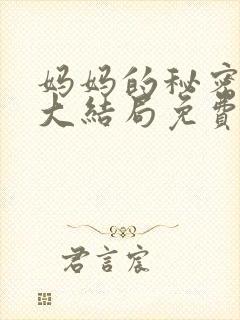 妈妈的秘密
大结局免費
君言宸